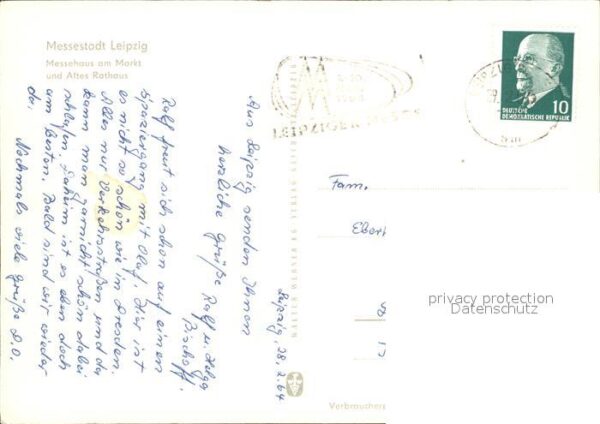 Messestadt Leipzig
Messehaus am Markt
und Altes Rathaus
LEIPZIGER MESSE
10
DEUTSCHE
DEMOKRATISCHE REPUBLIK
Leipzig, 28.2.64
Aus Leipzig senden Ihnen
herzliche Grüße Ralf u. Helga
Bischoff.
Ralf freut sich schon auf einen
Spaziergang mit Olaf. Hier ist
es nicht so schön wie in Dresden.
Alles nur Verkehrsstraßen und da
kann man garnicht schön dabei
schlafen. Daheim ist es eben doch
am besten. Bald sind wir wieder
da.
Nochmals viele Grüße D.O.
Fam.
Ebert
privacy protection
Datenschutz
Verbraucherp